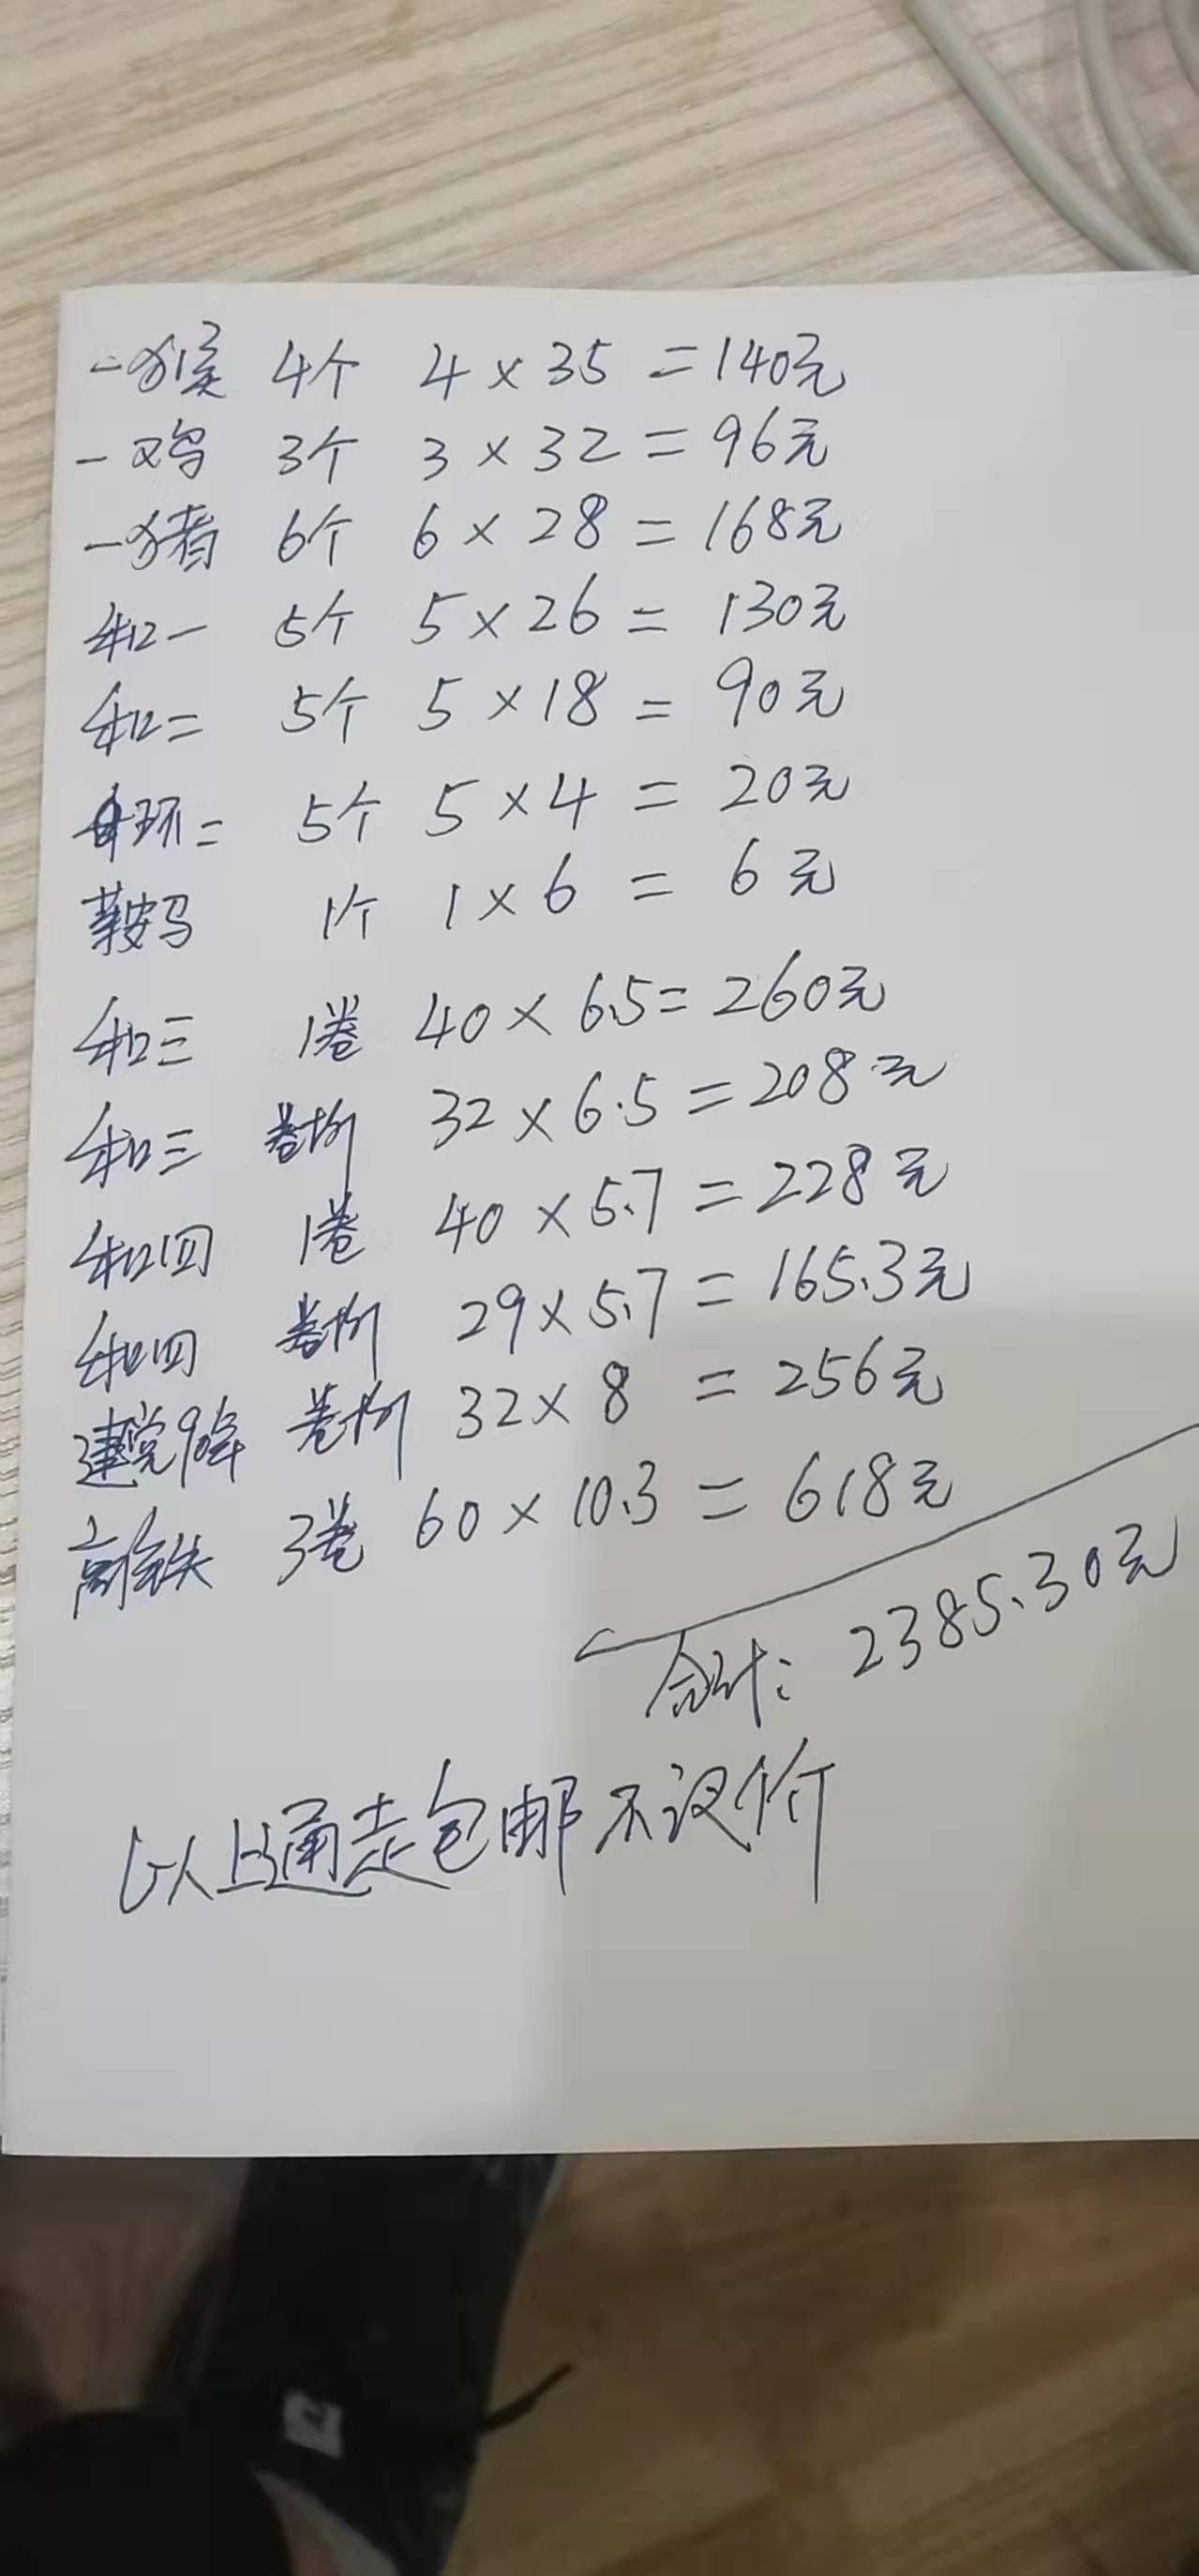 一猴 4个 4×35=140元
一鸡 3个 3×32=96元
一猪 6个 6×28=168元
和一 5个 5×26=130元
和二 5个 5×18=90元
环二 5个 5×4=20元
鞍马 1个 1×6=6元
和三 1卷 40×6.5=260元
和三 卷拆 32×6.5=208元
和四 1卷 40×5.7=228元
和四 卷拆 29×5.7=165.3元
建党90年 卷拆 32×8=256元
高铁 3卷 60×10.3=618元
合计: 2385.30元
以上通走包邮不议价